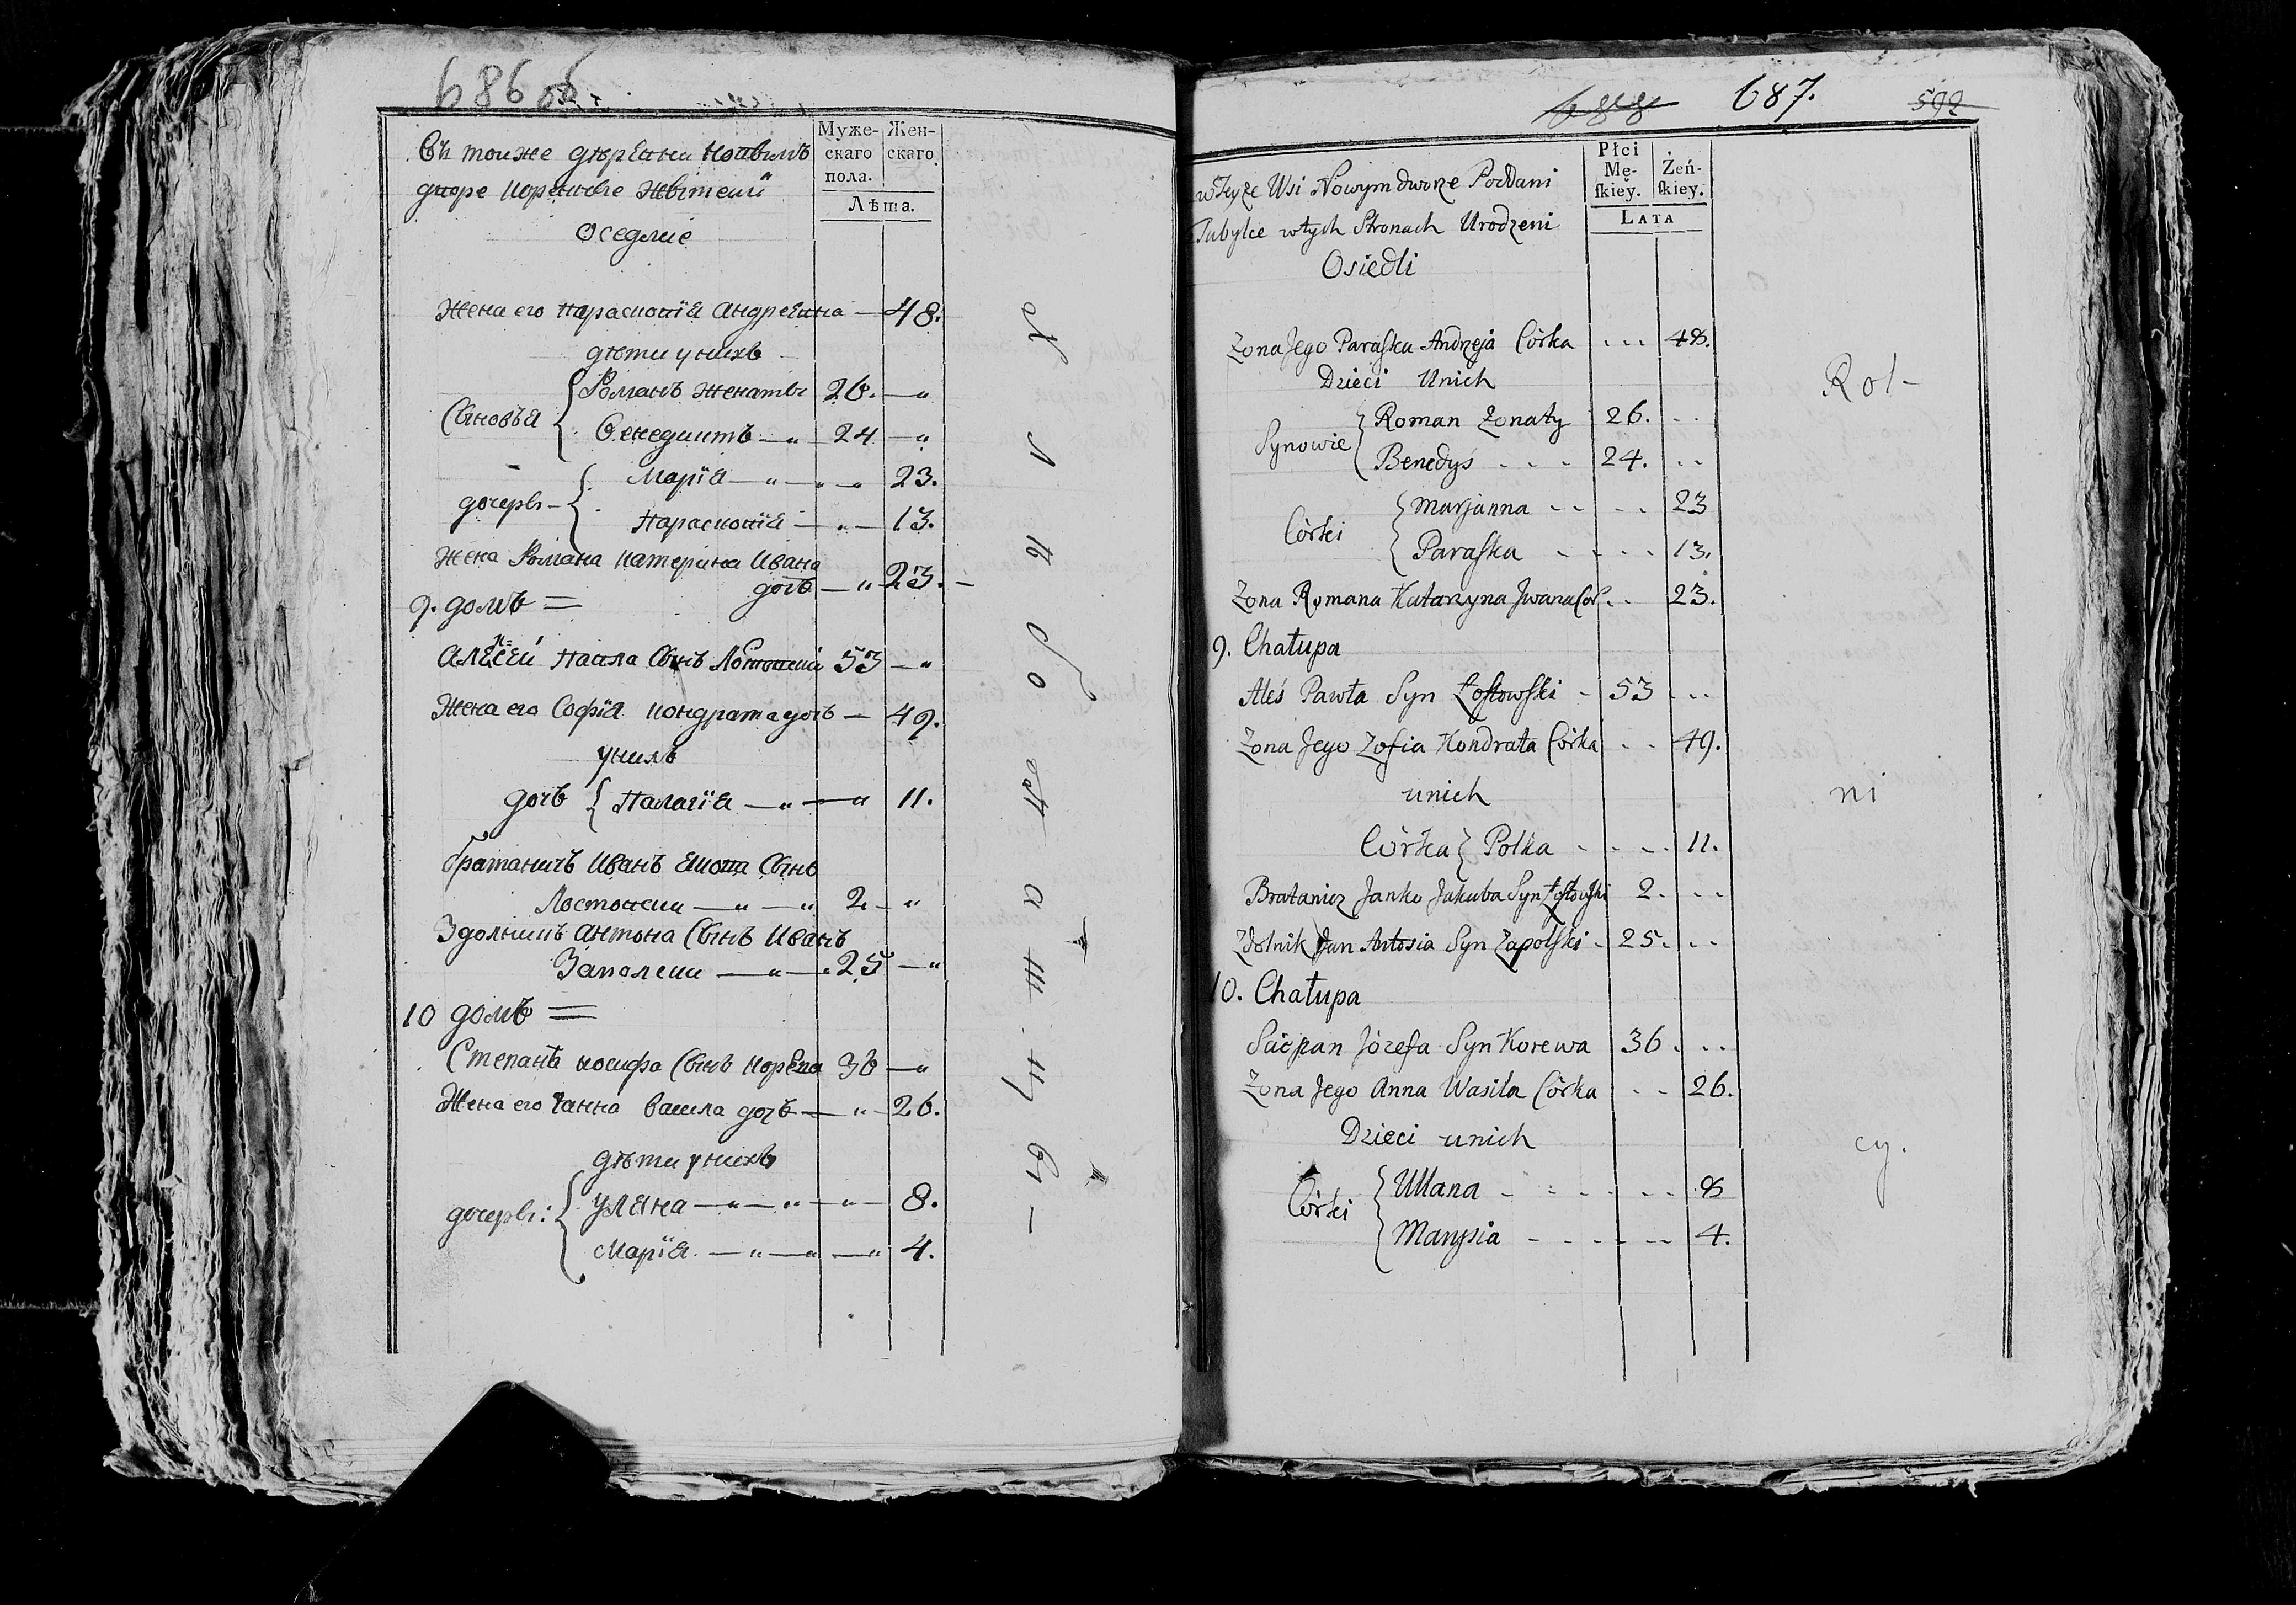 686 об.
Муже-
скаго
пола.
Жен-
скаго.
Лѣта.
Въ тоиже
Оседлые
Жена его Параскопія Андреевна — 48.
дѣти у нихъ
Сыновья { Романъ женаты 26. — „
Бенедиктъ — „ — 24 — „
дочерѣ — { Марія — „ — „ — 23.
Параскопія — „ — 13.
Жена Романа Катерина Ивана
дочь — „ 23. —
9. домъ =
Алексей Павла Сынъ 53 — „
Жена его Софія Кондрата дочь — 49.
у нихъ
дочь { Палагія — „ — „ 11.
братаничъ Иванъ Сынъ
— „ — „ 2. — „
Здольникъ Антона Сынъ Иванъ
Запольски — „ — 25 — „
10 домъ =
Степанъ Іосифа Сынъ Корева 36 — „
Жена его Ганна Васила дочь — „ — 26.
дѣти у нихъ
дочерѣ: { Уляна — „ — „ — „ — 8.
Марія — „ — „ — „ 4.
687. 592
Płci
Mę-
ſkiey.
Żeń-
ſkiey.
LATA
w Teyże Wsi Nowym dworze Poddani
Tubylce w tych Stronach Urodzeni
Osiedli
Żona Jego Paraſka Andrzeja Córka ... 48.
Dzieci Unich
Synowie { Roman Żonaty 26. ..
Benedyś . . . 24. ..
Córki { Marjanna .. .. 23
Paraſka . . . . 13.
Żona Romana Katarzyna Jwana Cór. .. 23.
9. Chałupa
Aleś Pawła Syn Łoſtowſki - 53 ...
Żona Jego Zofia Kondrata Córka .. 49.
unich
Córka { Polka . . . . 11.
Bratanicz Janko Jakuba Syn Łoſtowſki 2. ..
Zdolnik Jan Antosia Syn Zapolſki . 25. ..
10. Chałupa
Sciepan Józefa Syn Korewa 36 . ..
Żona Jego Anna Wasila Córka .. 26.
Dzieci unich
Córki { Ullana . . . . . . 8
Marysia - - - - - - 4.
Rol-
ni
cy.